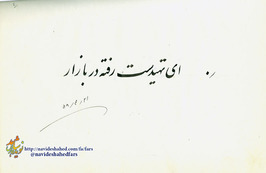 ای تهیدست رفته در بازار
http://navideshahed.com/fa/fars
@navideshahedfars